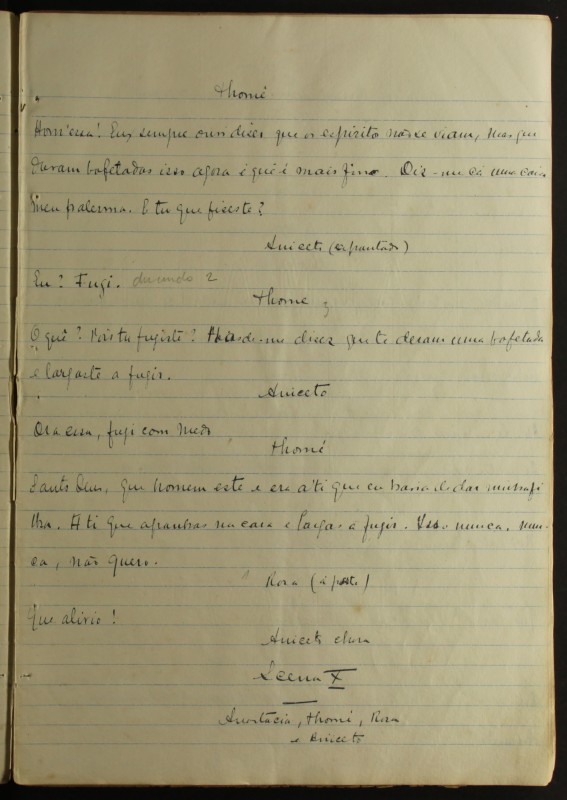 Thomé
Hom'essa! Eu, sempre ouvi dizer que os espirito não se viam, mas que
davam bofetadas isso agora é que é mais fino. Diz-me cá uma coisa
meu palerma. E tu que fizeste?
Aniceto (espantado)
Eu? Fugi. 2
Thomé 3
O quê? Pois tu fugiste? que te deram uma bofetada
e largaste a fugir.
Aniceto
Ora essa, fugi com medo
Thomé
Santo Deus, que homem este e era a ti que eu havia de dar minha fi
lha. A ti que apanhas na cara e largas a fugir. Isso nunca, nun-
ca, não quero.
Rosa (á parte)
Que alivio!
Aniceto chora
Scena X
Anastacia, Thomé, Rosa
e Aniceto